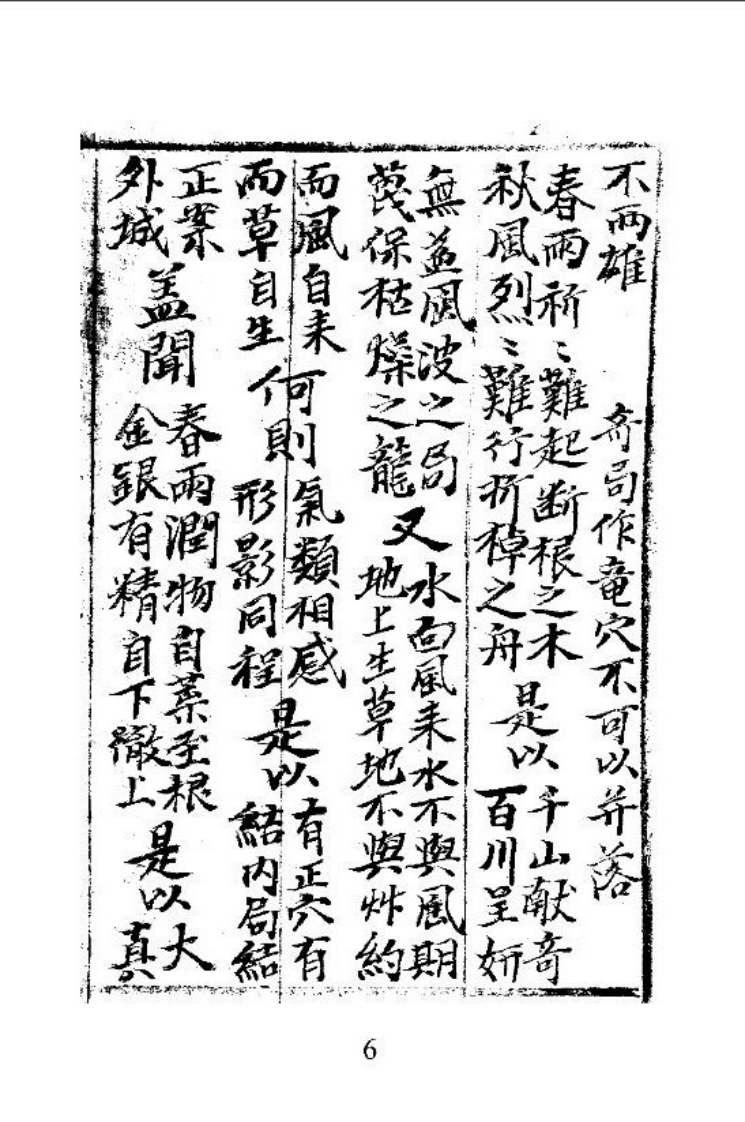 不両雄 奇局作竜穴不可以并落
春雨祈〻難起断根之木
秋風烈〻難行折棹之舟
是以
千山献奇
百川呈妍
無益風波之局
蔑保枯燥之龍
又
水面風来水不與風期
地上生草地不與艸約
而風自来
而草自生
何則
氣類相感
形影同程
是以
有正穴有
結内局結
正案
外城
盖聞
春雨潤物自葉至根
金銀有精自下徹上
是以
大
真
6